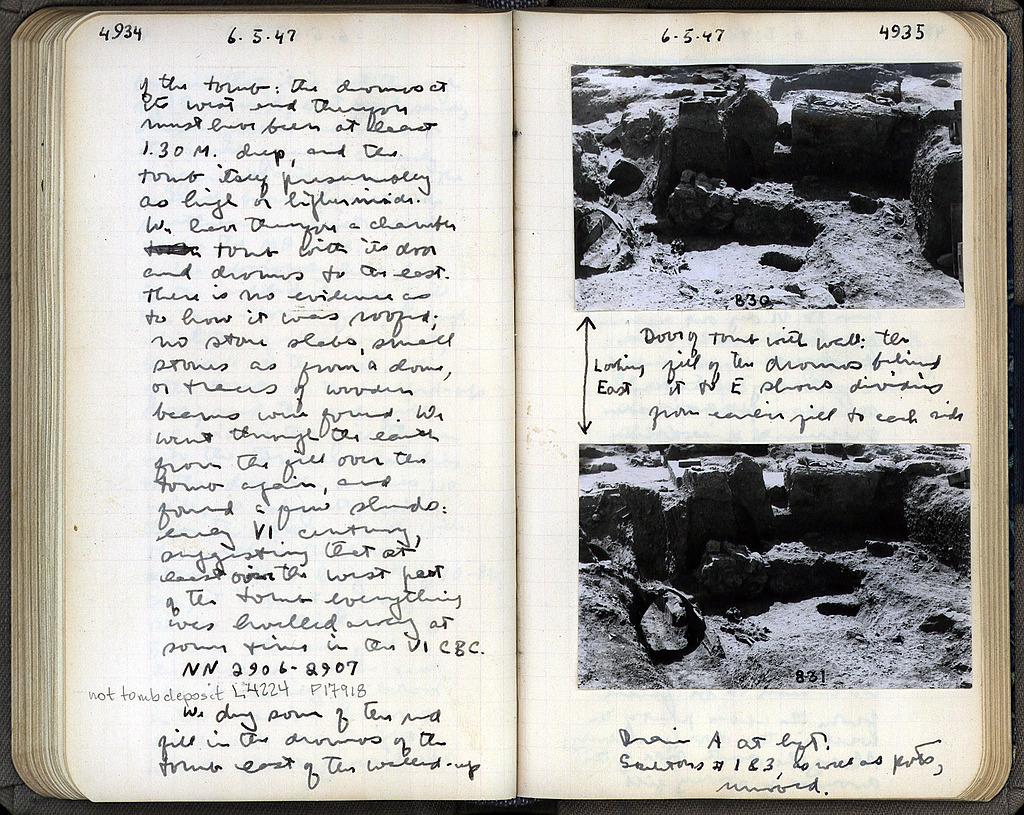 4934
6.5.47
of the tomb: the dromos at
its west end therefore
must have been at least
1.30 M. deep, and the
tomb itself presumably
as high or higher inside.
We have therefore a chamber
tomb with its door
and dromos to the east.
There is no evidence as
to how it was roofed;
no stone slabs, small
stones as from a dome,
or traces of wooden
beams were found. We
went through the earth
from the fill over the
tomb again, and
found a few sherds:
early VI century,
suggesting that at
least over the west part
of the tomb everything
was hauled away at
some time in the VI C BC.
NN 2906-2907
not tomb deposit L4224 P17918
We dug some of the red
fill in the dromos of the
tomb east of the walled-up
6.5.47
4935
830
Door of tomb with wall: the
Looking fill of the dromos behind
East it to E shows dividing
from earlier fill to each side
831
Drain A at left.
Skeletons # 1 & 3, as well as pots,
removed.